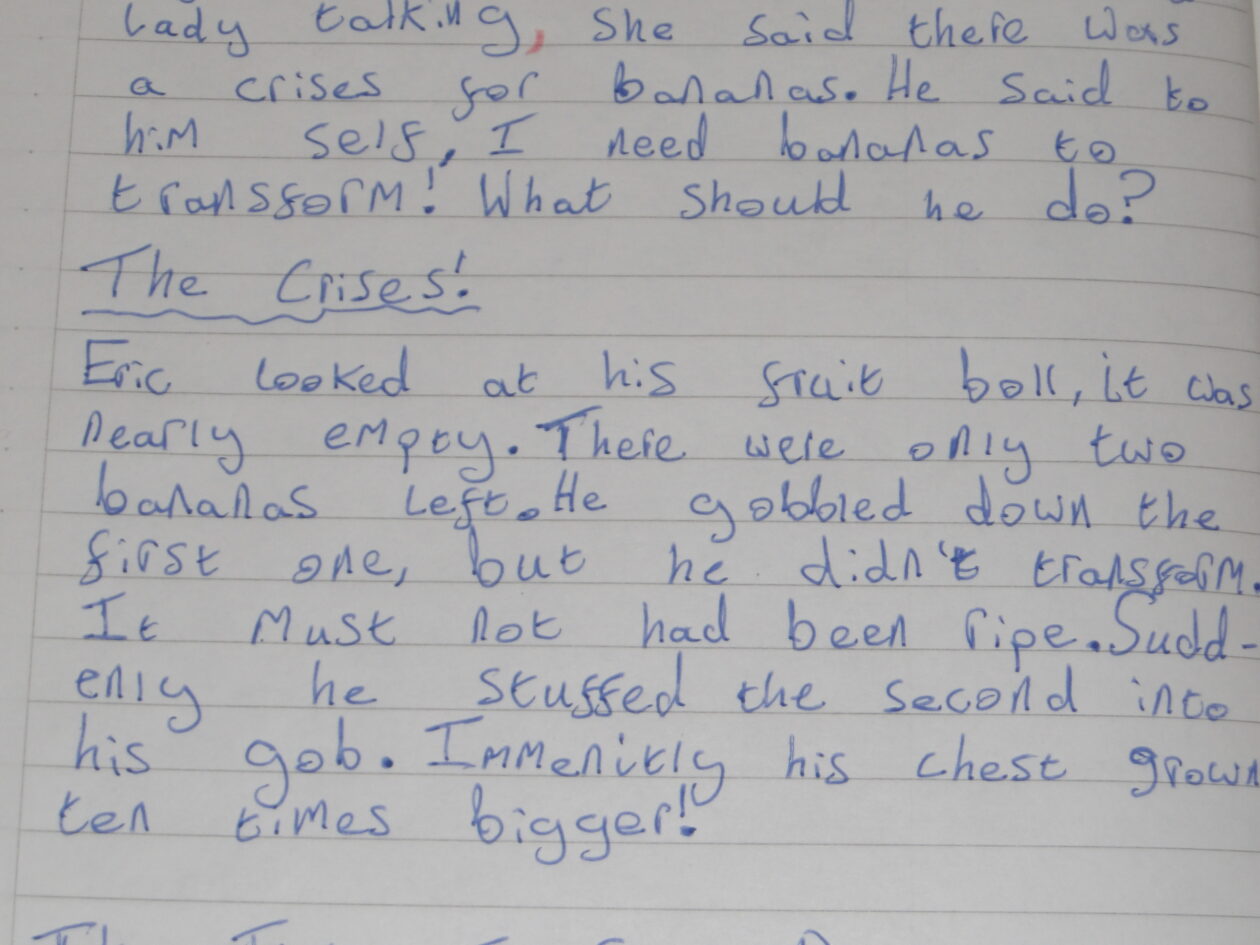 lady talking, she said there was
a crises for bananas. He said to
him self, I need bananas to
transform! What should he do?
The Crises!
Eric looked at his fruit boll, it was
nearly empty. There were only two
bananas left. He gobbled down the
first one, but he didn't transform.
It must not had been ripe. Sudd-
enly he stuffed the second into
his gob. Immenitly his chest grown
ten times bigger!